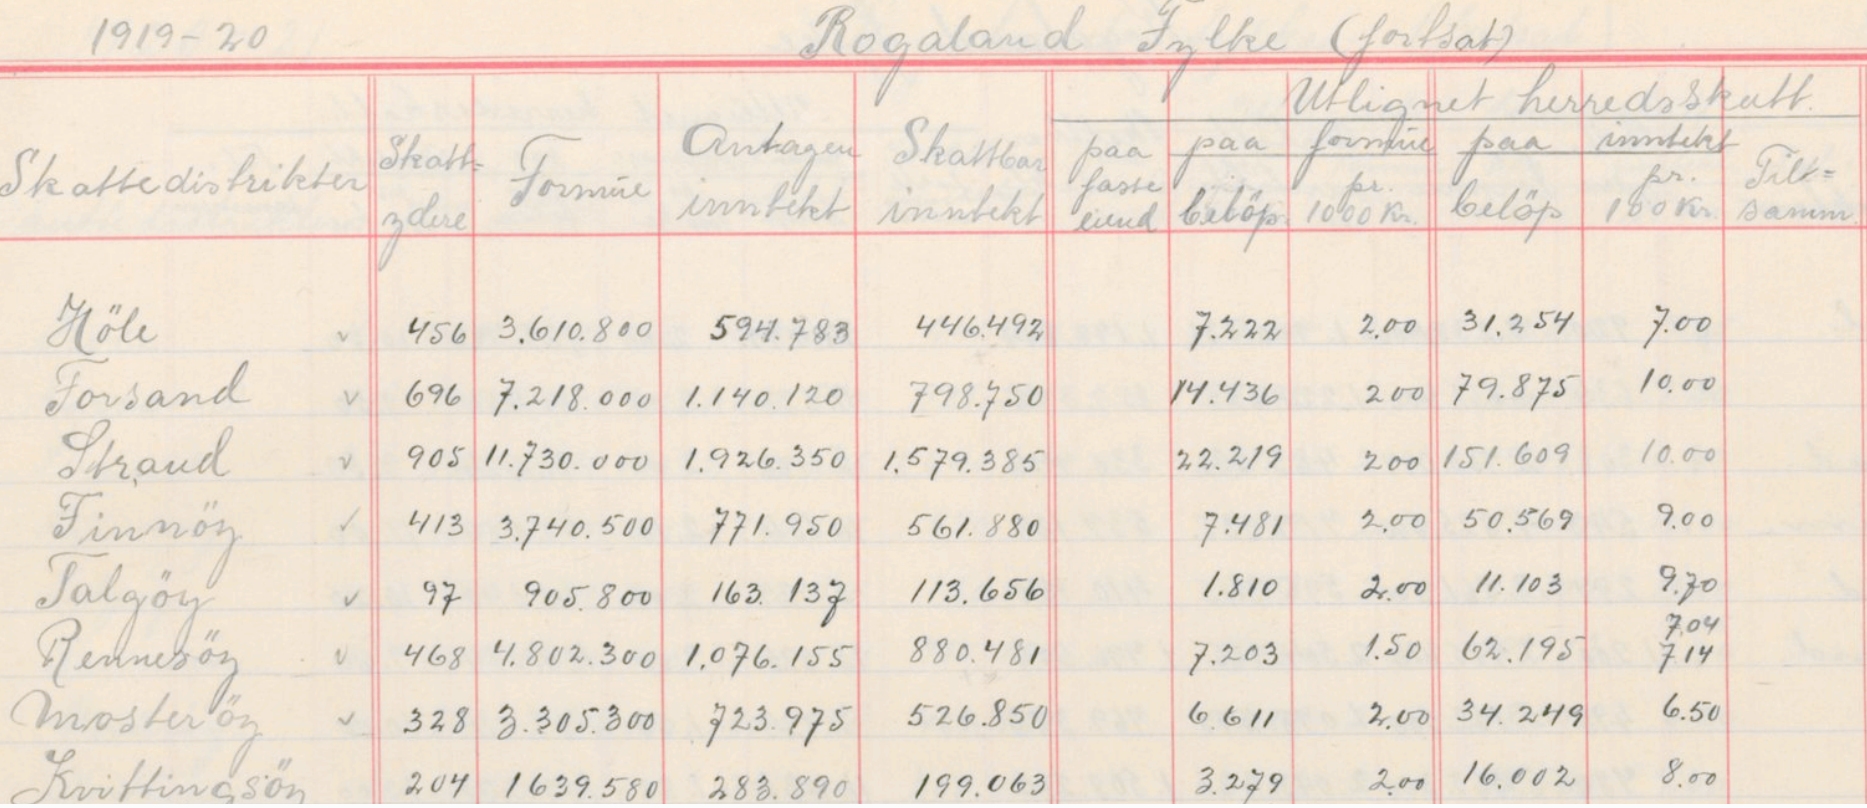 1919-20 Rogaland Fylke (fortsat)
Utlignet herredsskatt.
Skattedistrikter Skatt-ydere Formue Antagen inntekt Skattbar inntekt paa faste eiend paa formue beløp pr. 1000 Kr. paa inntekt beløp pr. 100 Kr. Tils= samm
Höle v 456 3.610.800 594.783 446.492 7.222 2.00 31.254 7.00
Forsand v 696 7.218.000 1.140.120 798.750 14.436 200 79.875 10.00
Strand v 905 11.730.000 1.926.350 1.579.385 22.219 200 151.609 10.00
Finnöy v 413 3.740.500 771.950 561.880 7.481 2.00 50.569 9.00
Talgöy v 97 905.800 163.137 113.656 1.810 2.00 11.103 9.70
7.04
Rennesöy v 468 4.802.300 1.076.155 880.481 7.203 1.50 62.195 714
Mosteröy v 328 3.305.300 723.975 526.850 6.611 2.00 34.249 6.50
Kvittingsöy 204 1639.580 283.890 199.063 3.279 2.00 16.002 8.00